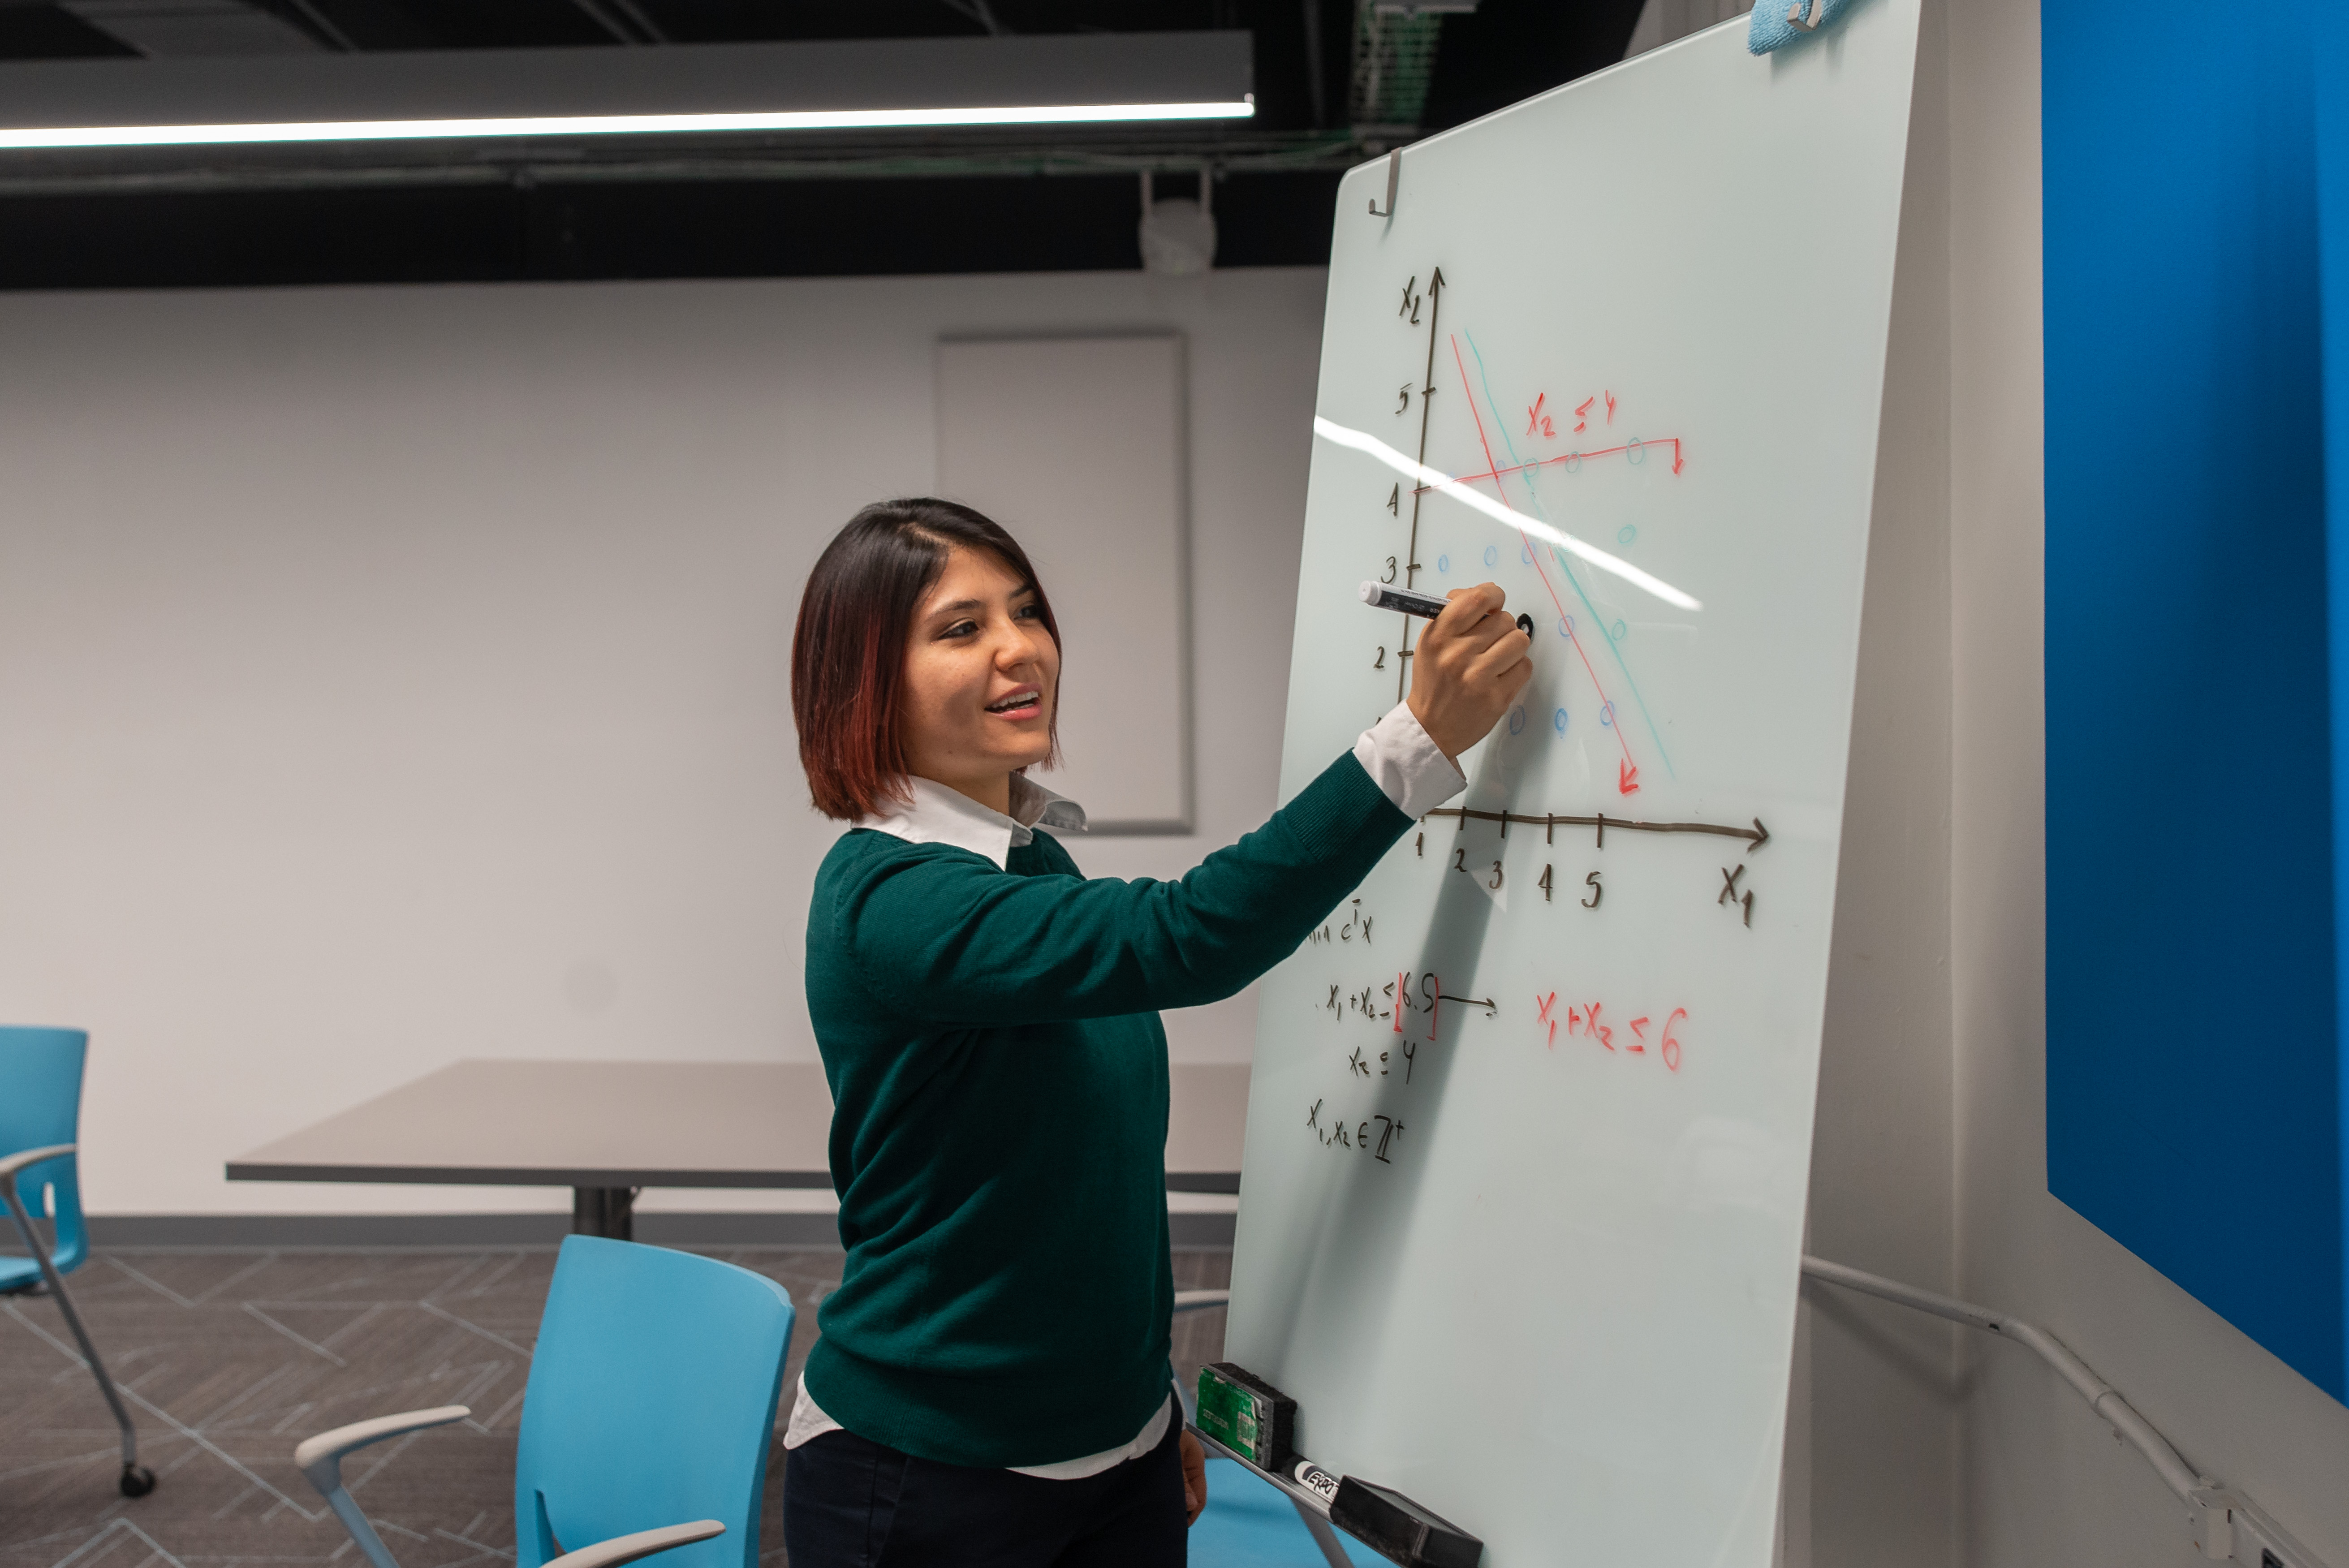 x₂
5
x₂ ≤ 4
4
3
2
1 2 3 4 5
x₁
cᵀx
x₁ + x₂ ≤ [6.5] → x₁ + x₂ ≤ 6
x₂ ≤ 4
x₁, x₂ ∈ ℤ⁺
EXPO